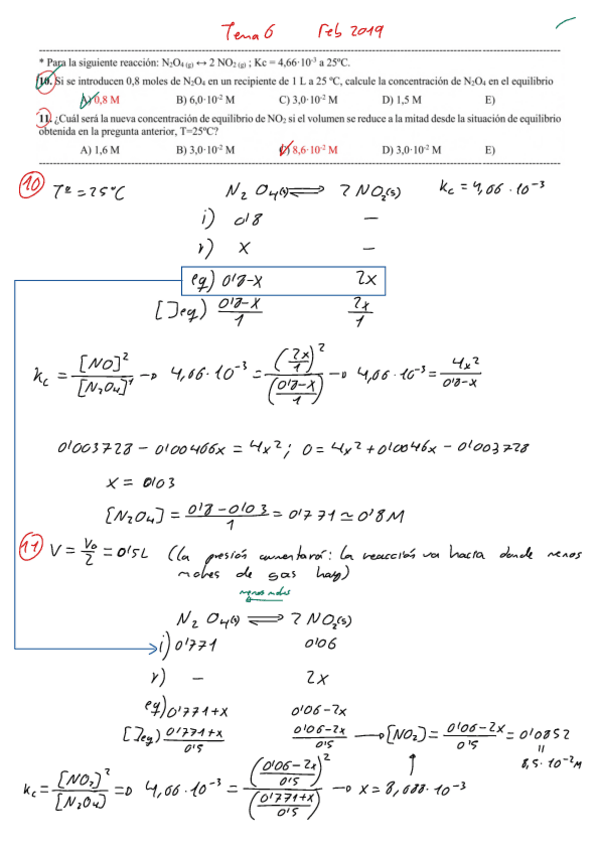 Tema 6 Feb 2019
* Para la siguiente reacción: N₂O₄ (g) ↔ 2 NO₂ (g) ; Kc = 4,66·10⁻³ a 25ºC.
10. Si se introducen 0,8 moles de N₂O₄ en un recipiente de 1 L a 25 ºC, calcule la concentración de N₂O₄ en el equilibrio
A) 0,8 M B) 6,0·10⁻² M C) 3,0·10⁻² M D) 1,5 M E)
11. ¿Cuál será la nueva concentración de equilibrio de NO₂ si el volumen se reduce a la mitad desde la situación de equilibrio
obtenida en la pregunta anterior, T=25ºC?
A) 1,6 M B) 3,0·10⁻² M C) 8,6·10⁻² M D) 3,0·10⁻² M E)
10 Tª = 25ºC N₂O₄(g) ⇌ 2 NO₂(g) Kc = 4,66·10⁻³
i) 0'8 —
r) x —
eq) 0'8-x 2x
[ ]eq) (0'8-x)/1 2x/1
Kc = [NO]²/[N₂O₄]¹ → 4,66·10⁻³ = (2x/1)²/((0'8-x)/1) → 4,66·10⁻³ = 4x²/(0'8-x)
0'003728 - 0'00466x = 4x² ; 0 = 4x² + 0'0046x - 0'003728
x = 0'03
[N₂O₄] = (0'8-0'03)/1 = 0'771 ≃ 0'8M
11 V = V₀/2 = 0'5L (la presión aumentará: la reacción va hacia donde menos
moles de gas hay)
menos moles
N₂O₄(g) ⇌ 2 NO₂(g)
i) 0'771 0'06
r) - 2x
eq) 0'771+x 0'06-2x
[ ]eq) (0'771+x)/0'5 (0'06-2x)/0'5 → [NO₂] = (0'06-2x)/0'5 = 0'0852
=
8,5·10⁻² M
Kc = [NO₂]²/[N₂O₄] ⇒ 4,66·10⁻³ = ((0'06-2x)/0'5)²/((0'771+x)/0'5) → x = 8,688·10⁻³